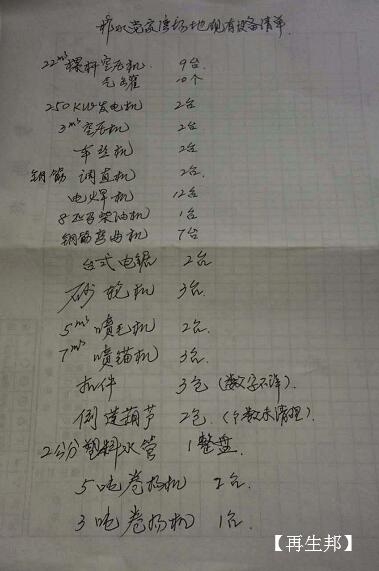 柞水党家湾场地现有设备清单
22m³螺杆空压机 9台
气罐 10个
250KW发电机 2台
3m³空压机 2台
车丝机 2台
钢筋 调直机 2台.
电焊机 12台
8匹马柴油机 1台
钢筋弯曲机 7台
台式电锯 2台
砂轮机 3台.
5m³喷毛机 2台.
7m³喷锚机 3台.
扣件 3包(数字不详).
倒连葫芦 2包.(个数未清理).
2公分塑料水管 1整盘.
5吨卷扬机 2台.
3吨卷扬机 1台.
【再生邦】